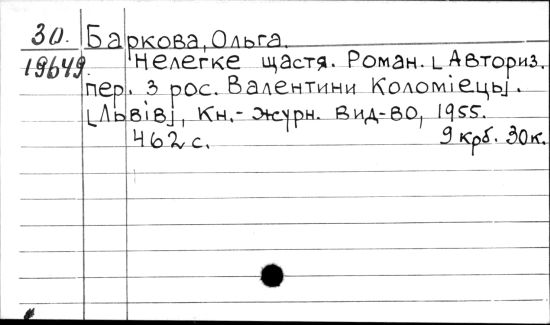 30. Баркова, Ольга.
19649. Нелегке щастя. Роман. [Авториз.
пер. з рос. Валентини Коломієць].
[Львів], Кн.-журн. вид-во, 1955.
462 с. 9 крб. 30 к.